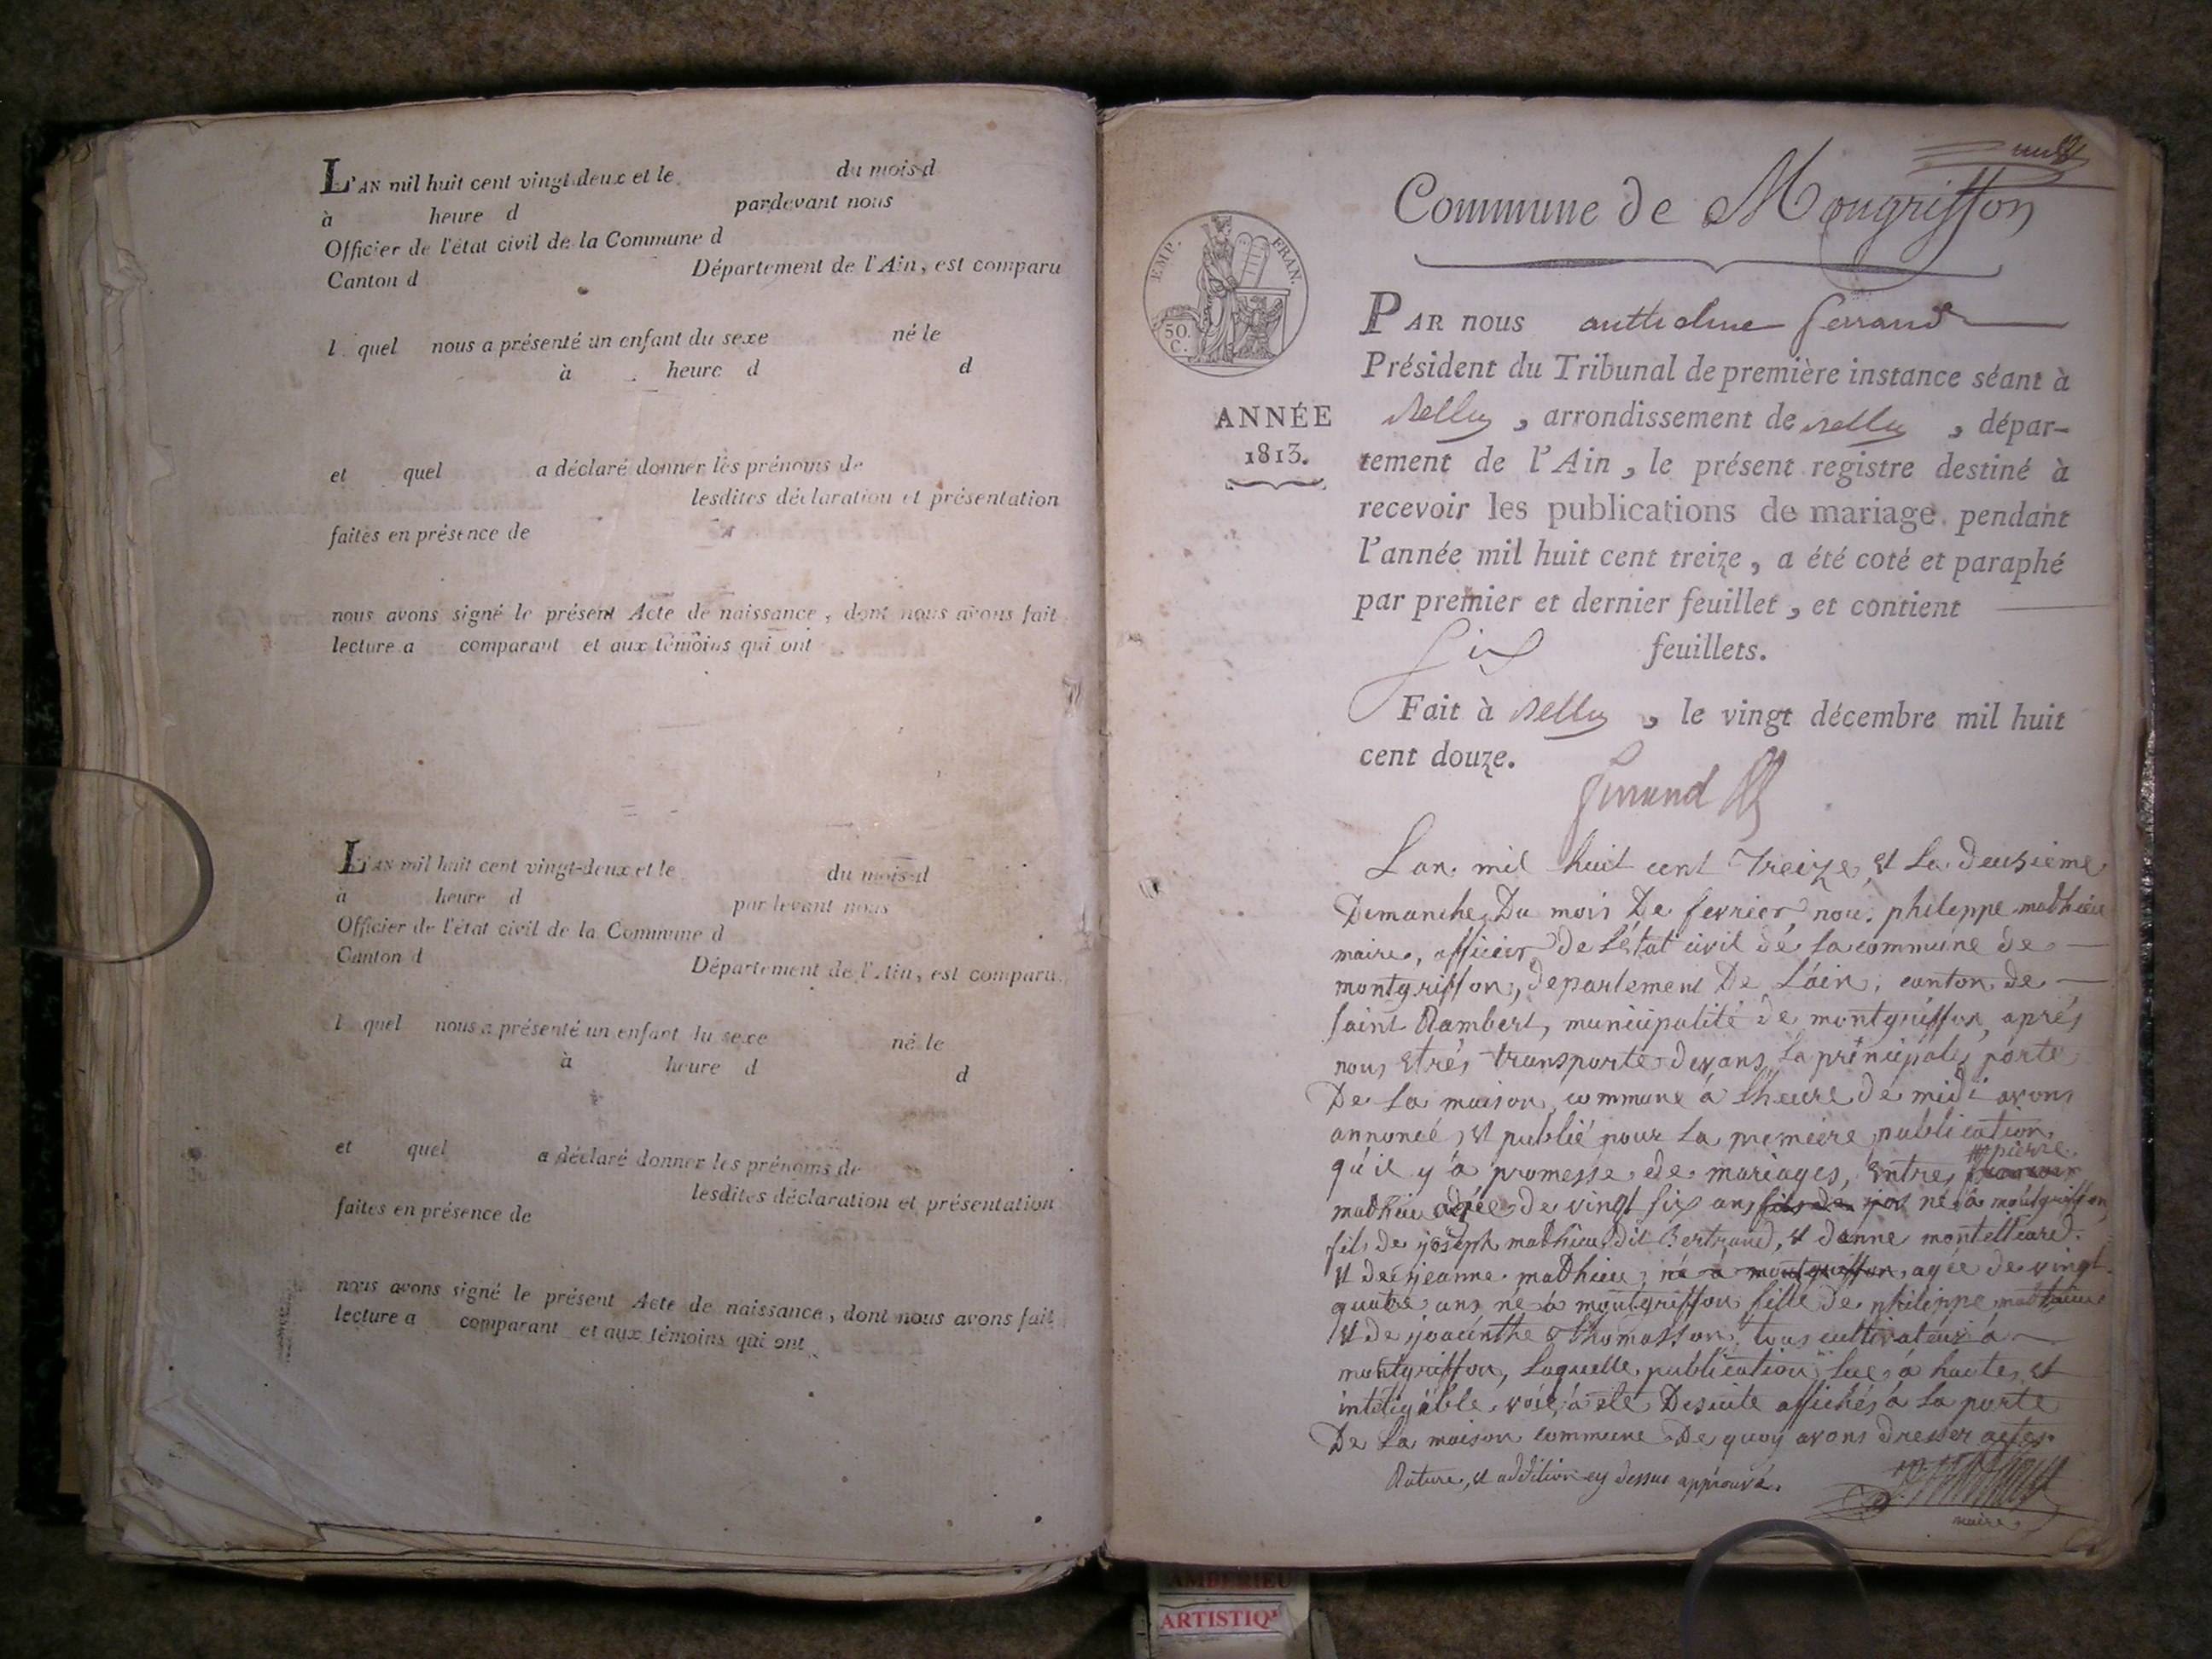 L'AN mil huit cent vingt-deux et le du mois d
à heure d pardevant nous
Officier de l'état civil de la Commune d
Canton d Département de l'Ain, est comparu
l quel nous a présenté un enfant du sexe né le
à heure d d
et quel a déclaré donner les prénoms de
lesdites déclaration et présentation
faites en présence de
nous avons signé le présent Acte de naissance, dont nous avons fait
lecture a comparant et aux témoins qui ont
L'AN mil huit cent vingt-deux et le du mois d
à heure d par levant nous
Officier de l'état civil de la Commune d
Canton d Département de l'Ain, est comparu
l quel nous a présenté un enfant du sexe né le
à heure d d
et quel a déclaré donner les prénoms de
lesdites déclaration et présentation
faites en présence de
nous avons signé le présent Acte de naissance, dont nous avons fait
lecture a comparant et aux témoins qui ont
Commune de Mongriffon
EMP. FRAN.
50 C.
ANNÉE
1813.
PAR nous anthelme ferrand
Président du Tribunal de première instance séant à
Belley, arrondissement de Belley, dépar-
tement de l'Ain, le présent registre destiné à
recevoir les publications de mariage pendant
l'année mil huit cent treize, a été coté et paraphé
par premier et dernier feuillet, et contient
six feuillets.
Fait à Belley, le vingt décembre mil huit
cent douze.
ferrand
Lan mil huit cent Treize, et La deusieme
Dimanche Du mois De fevrier, nous philippe mathieu
maire, officier de L'état civil de la commune de
montgriffon, departement De L'ain, canton de
saint Rambert, municipalité de montgriffon, aprés
nous etrés transporte devans La principale porte
De La maison commune a Lheure de midi avons
annoncé, et publié pour La premiere publication
qu'il y á promesse de mariages, entres pierre
mathieu agée de vingt six ans fils de jos né a montgriffon
fils de joseph mathieu dit Bertrand, et danne montelliard
et de jeanne mathieu, né a montgriffon, agée de vingt
quatre ans né a montgriffon fille de philippe mathieu
et de jyacinthe Thomasson, tous cultivateurs a
montgriffon, Laquelle publication Lue a hautes et
inteligible voie, a eté Desuite affichés a La porte
De La maison commune De quoy avons dresser actes
Rature, et addition cy dessus approuvé.
maire
AMBERIEU
ARTISTIQ